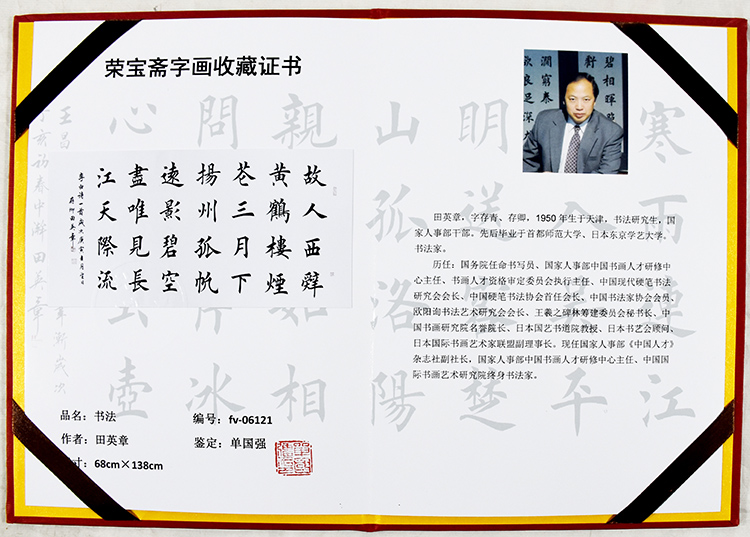 荣宝斋字画收藏证书
故人西辭
黄鶴樓煙
花三月下
揚州孤帆
遠影碧空
盡唯見長
江天際流
李白詩一首
田英章
品名：书法
作者：田英章
寸：68cm×138cm
编号：fv-06121
鉴定：单国强
田英章，字存青、存卿，1950年生于天津，书法研究生，国
家人事部干部。先后毕业于首都师范大学、日本东京学艺大学。
书法家。
历任：国务院任命书写员、国家人事部中国书画人才研修中
心主任、书画人才资格审定委员会执行主任、中国现代硬笔书法
研究会会长、中国硬笔书法协会首任会长、中国书法家协会会员、
欧阳询书法艺术研究会会长、王羲之碑林筹建委员会秘书长、中
国书画研究院名誉院长、日本国艺书道院教授、日本书艺会顾问、
日本国际书画艺术家联盟副理事长。现任国家人事部《中国人才》
杂志社副社长，国家人事部中国书画人才研修中心主任、中国国
际书画艺术研究院终身书法家。
寒雨連江
入平
明送楚
山孤洛陽
親如相
問片冰
心玉壺
田英章